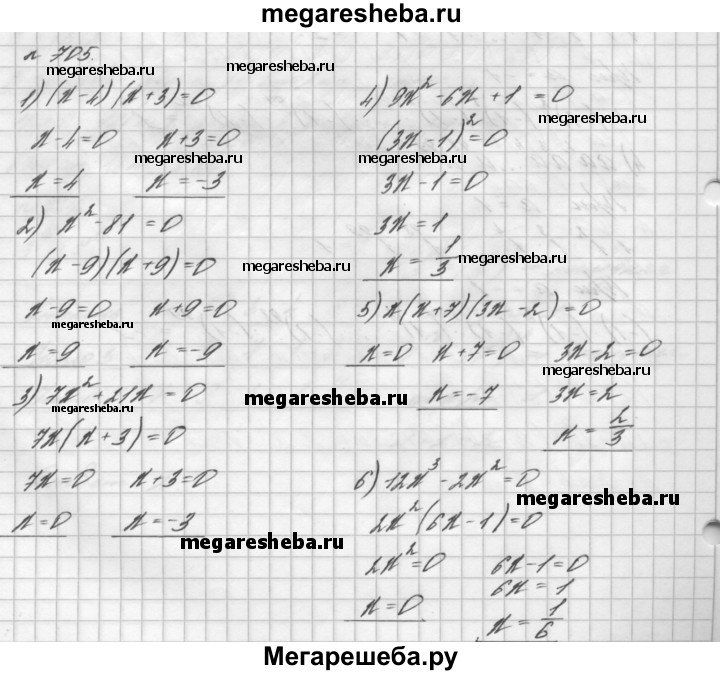 megaresheba.ru
№ 705.
megaresheba.ru
megaresheba.ru
1) (x-4)(x+3)=0
x-4=0 x+3=0
megaresheba.ru
x=4 x=-3
2) x²-81=0
(x-9)(x+9)=0
megaresheba.ru
x-9=0 x+9=0
megaresheba.ru
x=9 x=-9
3) 7x²+21x=0
megaresheba.ru
megaresheba.ru
7x(x+3)=0
7x=0 x+3=0
x=0 x=-3
megaresheba.ru
4) 9x²-6x+1=0
megaresheba.ru
(3x-1)²=0
megaresheba.ru
3x-1=0
3x=1
x=1/3
megaresheba.ru
5) x(x+7)(3x-2)=0
x=0 x+7=0 3x-2=0
megaresheba.ru
x=-7 3x=2
x=2/3
6) 12x³-2x²=0
megaresheba.ru
2x²(6x-1)=0
2x²=0 6x-1=0
6x=1
x=0 x=1/6
Мегарешеба.ру